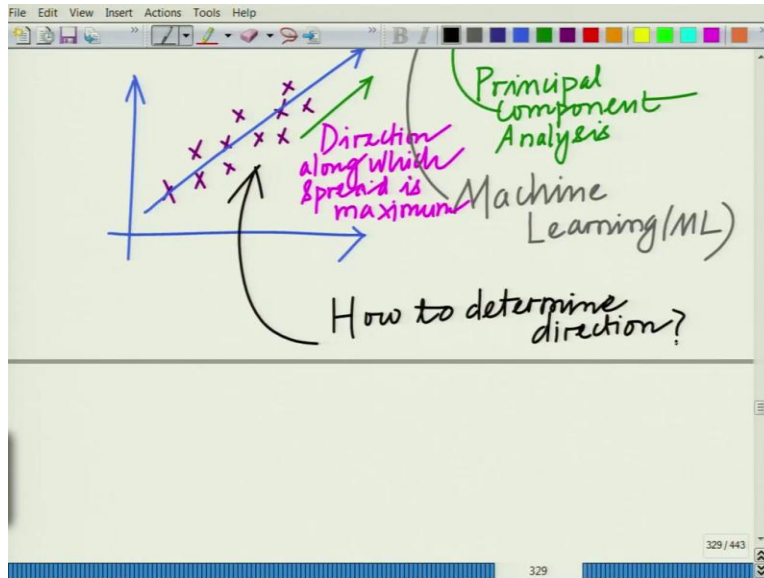 File Edit View Insert Actions Tools Help
B I
Principal
Component
Analysis
Direction
along which
spread is
maximum
Machine
Learning (ML)
How to determine
direction?
329 / 443
329